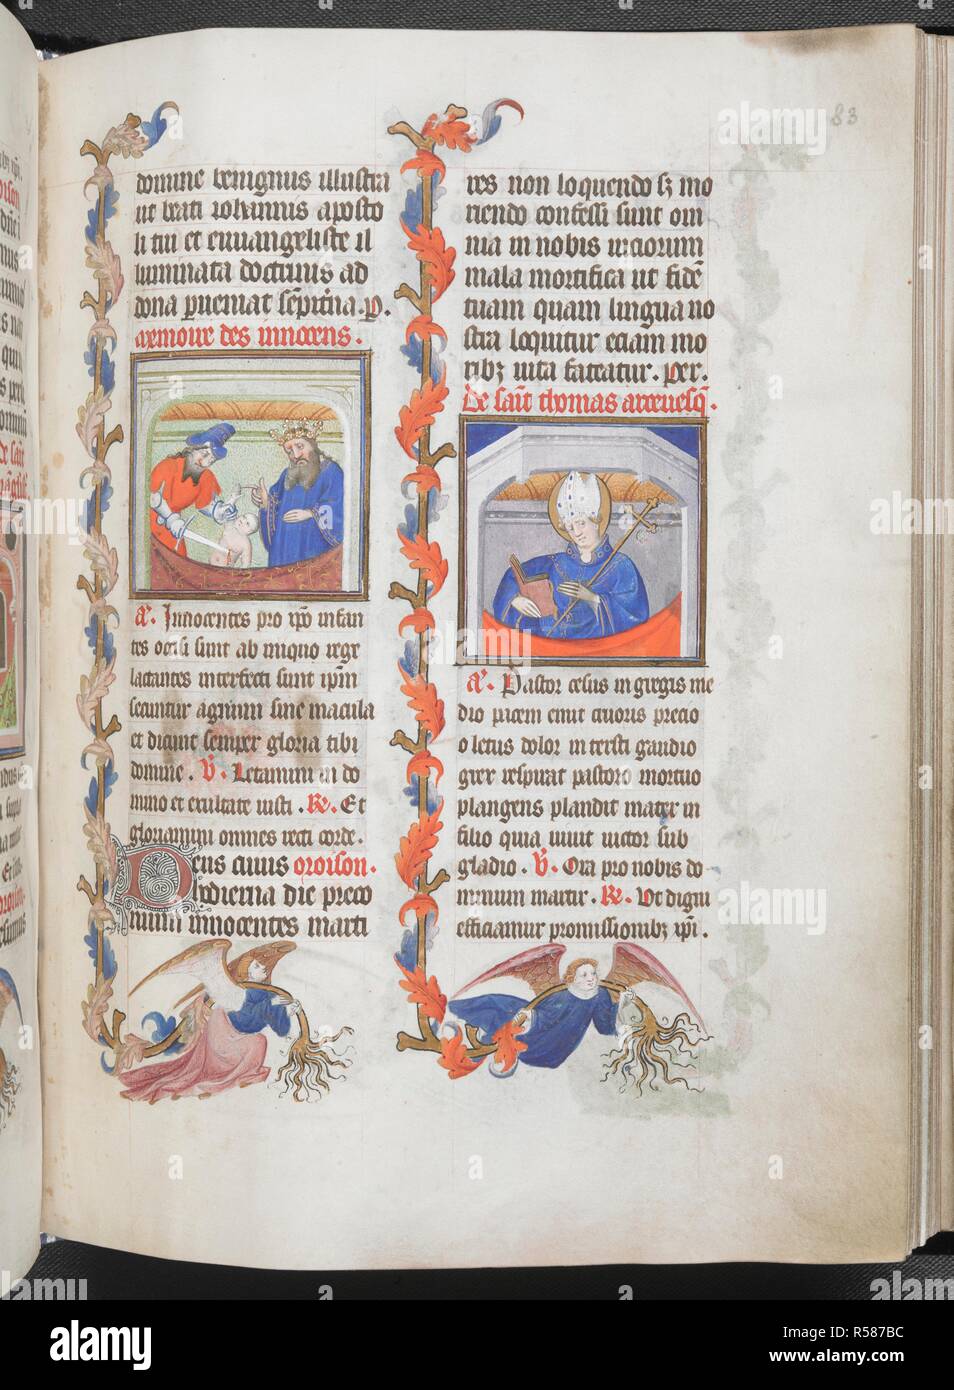 83
domine benignus illustra
ut beati iohannis aposto
li tui et euuangeliste il
luminata doctrinis ad
dona perueniat sempiterna. p.
memoire des innocens.
a. Innocentes pro xpo infan
tes occisi sunt ab iniquo rege
lactantes interfecti sunt ipm
secuntur agnum sine macula
et dicunt semper gloria tibi
domine. V. Letamini in do
mino et exultate iusti. R. Et
gloriamini omnes recti corde.
Deus cuius oroison.
hodierna die preco
nium innocentes marti
res non loquendo sz mo
riendo confessi sunt om
nia in nobis uiciorum
mala mortifica ut fidē
tuam quam lingua no
stra loquitur etiam mo
ribz uita fateatur. per.
De saīt thomas arceuesq.
a. Pastor cesus in gregis me
dio pacem emit cruoris precio
o letus dolor in tristi gaudio
grex respirat pastore mortuo
plangens plaudit mater in
filio quia uiuit uictor sub
gladio. V. Ora pro nobis do
mini martir. R. Ut digni
efficiamur promissionibz xpi.
alamy
Image ID: R587BC
www.alamy.com